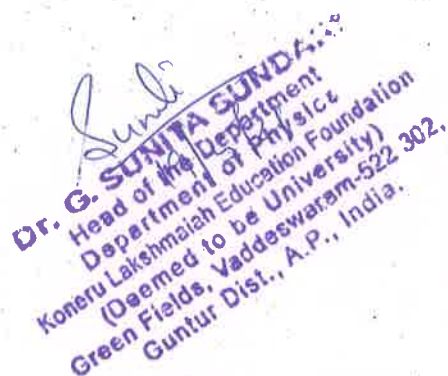 Sunli
Dr. G. SUNITA SUNDA
Head of the Department
Department of Physics
Koneru Lakshmaiah Education Foundation
(Deemed to be University)
Green Fields, Vaddeswaram-522 302,
Guntur Dist., A.P., India.